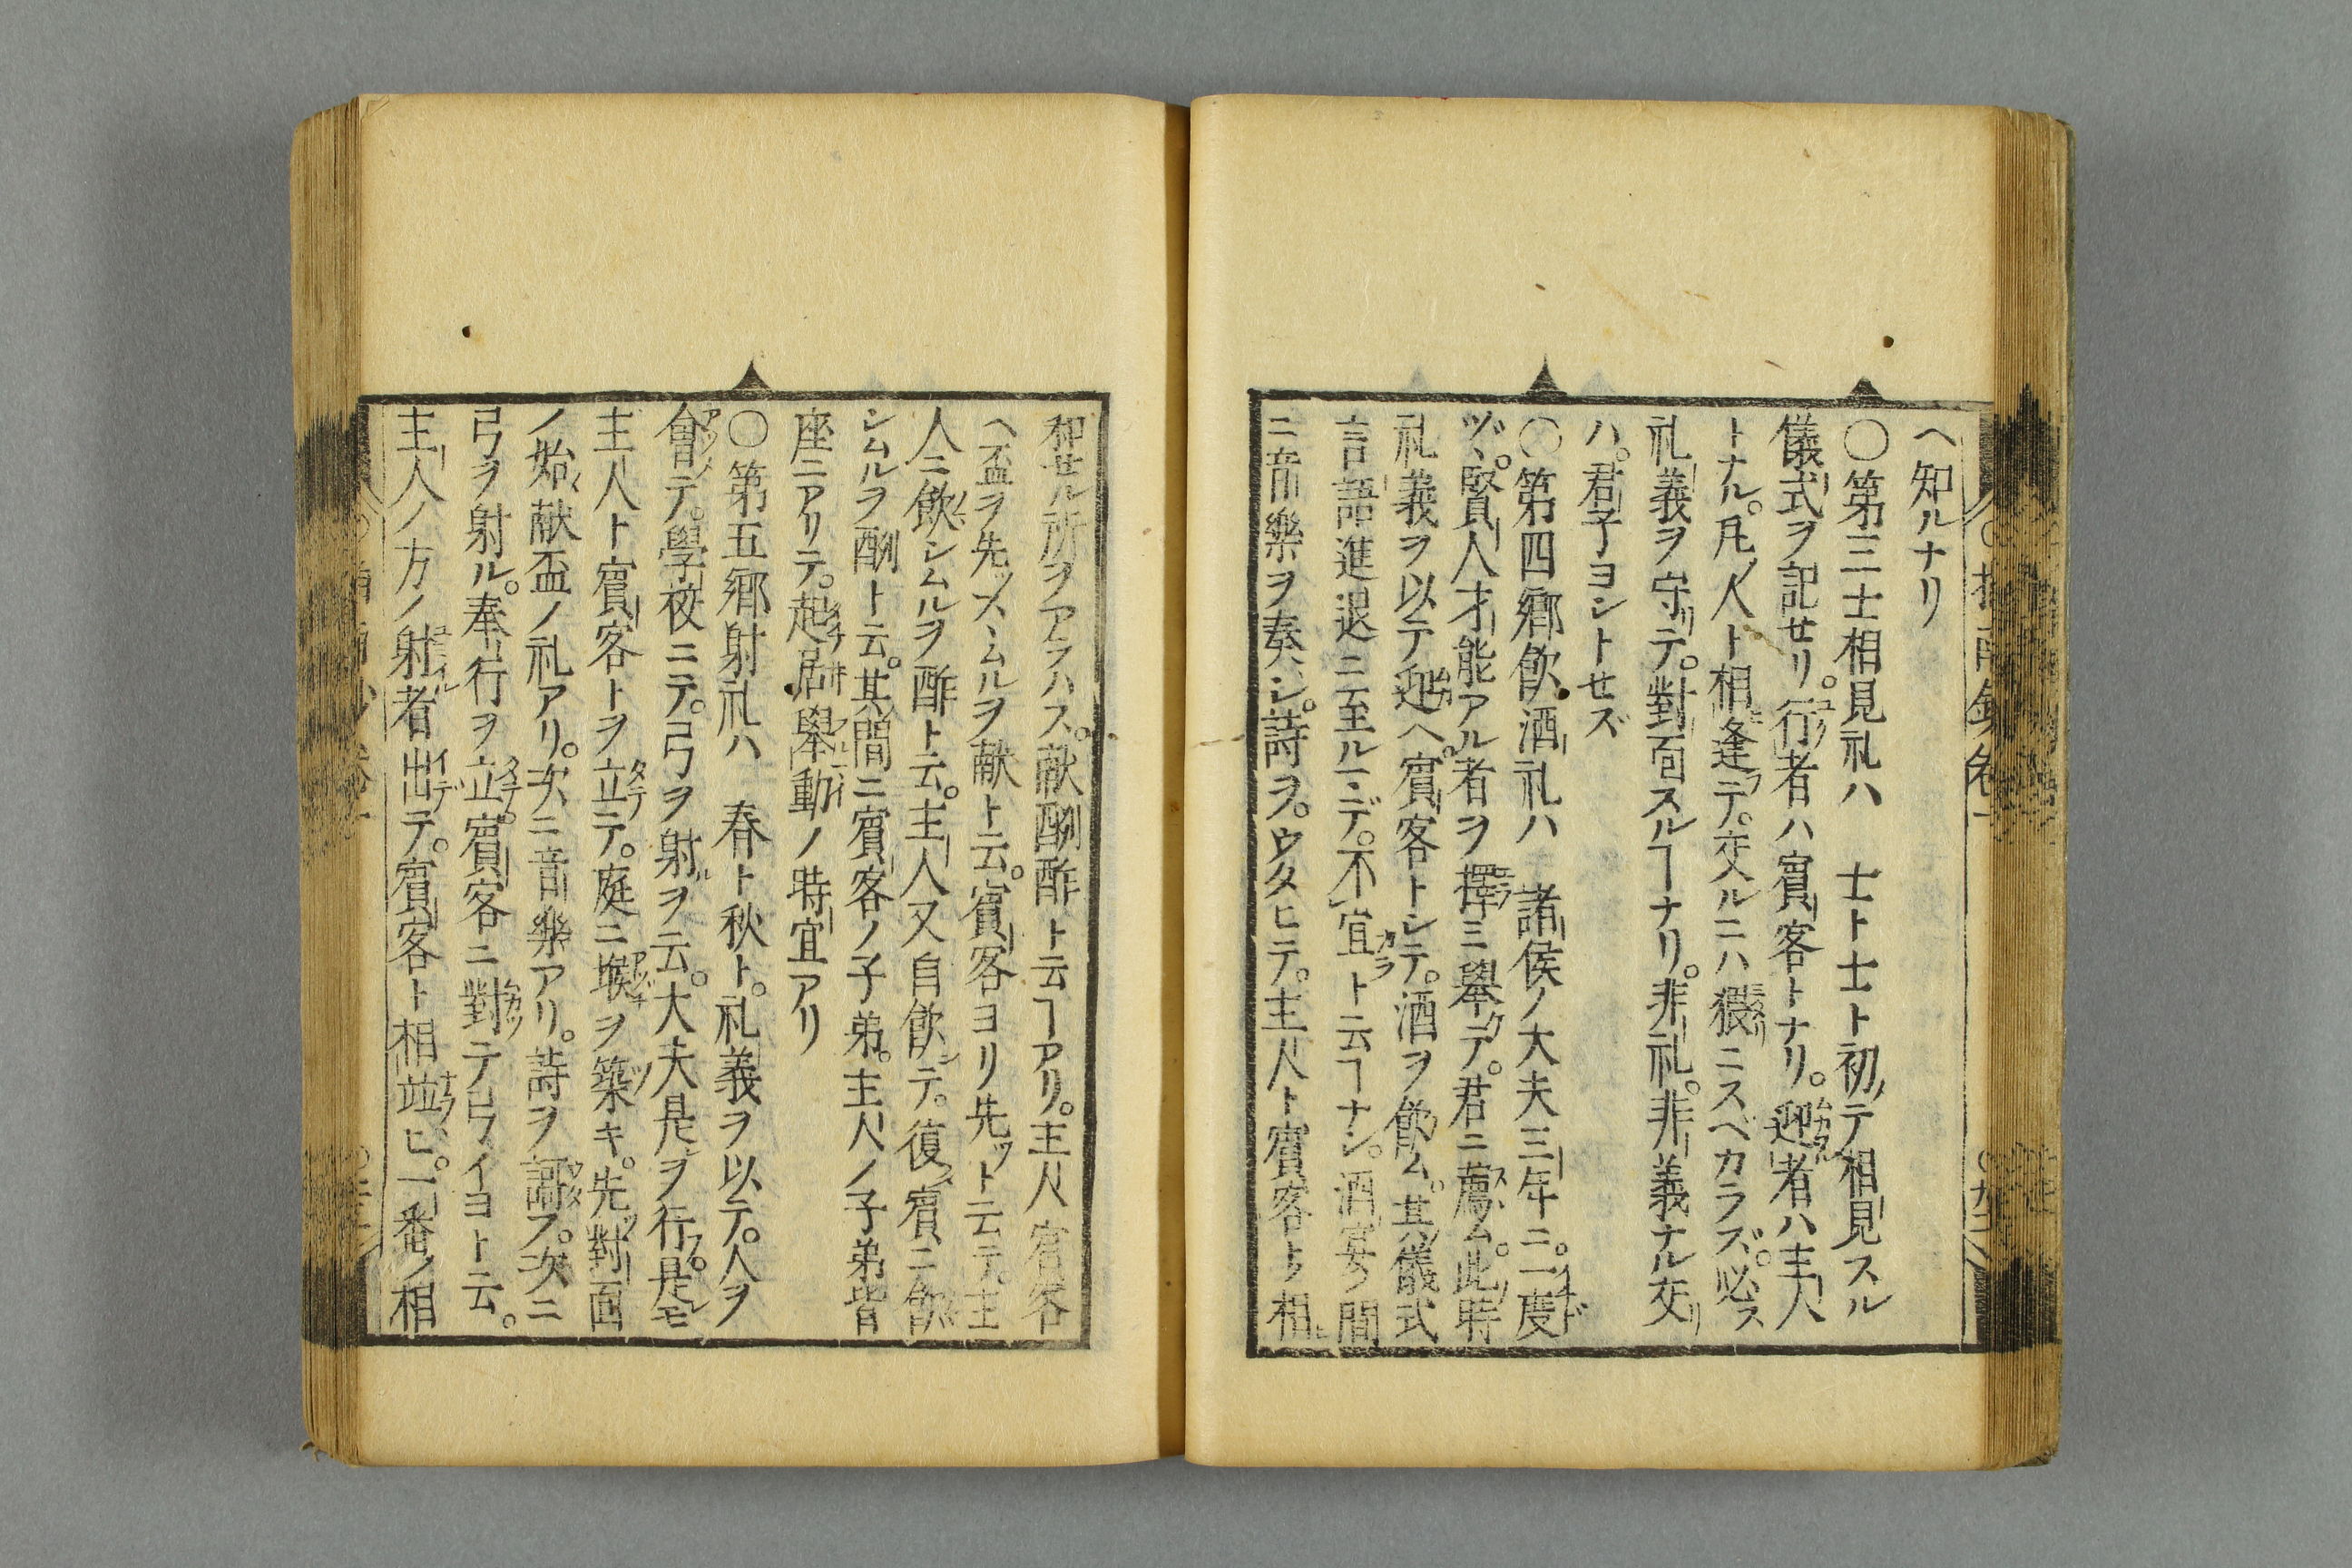 ヘ知ルナリ
〇第三士相見礼ハ 士ト士ト初テ相見スル
儀式ヲ記せリ。行者ハ賓客トナリ。迎者ハ主人
トナル。凡人ト相逢テ。交ルニハ猥ニスベカラズ。必ス
礼義ヲ守テ。對面スルヿナリ。非礼。非義ナル交
ハ。君子ヨシトせズ
〇第四郷飲酒礼ハ 諸侯ノ大夫三年ニ。一度
ヅヽ。賢人才能アル者ヲ擇ミ擧テ。君ニ薦ム。此時
礼義ヲ以テ迎ヘ。賓客トシテ。酒ヲ飲ム。其儀式
言語進退ニ至ルマデ。不宜ト云ヿナシ。酒宴ノ間
ニ音樂ヲ奏シ。詩ヲ。ウタヒテ。主人ト賓客ト相
和せル所ヲアラハス。献酬酢ト云ヿアリ。主人賓客
ヘ盃ヲ先ヅスヽムルヲ献ト云。賓客ヨリ先ヅト云テ。主
人ニ飲シムルヲ酢ト云。主人又自飲テ。復賓ニ飲
シムルヲ酬ト云。其間ニ賓客ノ子弟。主人ノ子弟皆
座ニアリテ。起居擧動ノ時宜アリ
〇第五郷射礼ハ 春ト秋ト。礼義ヲ以テ。人ヲ
會テ。學校ニテ。弓ヲ射ヲ云。大夫是ヲ行フ。是モ
主人ト賓客トヲ立テ。庭ニ堠ヲ築キ。先對面
ノ始献盃ノ礼アリ。次ニ音樂アリ。詩ヲ謌フ。次ニ
弓ヲ射ル。奉行ヲ立。賓客ニ對テ弓イヨト云。
主人ノ方ノ射者出テ。賓客ト相並ヒ。一番ノ相